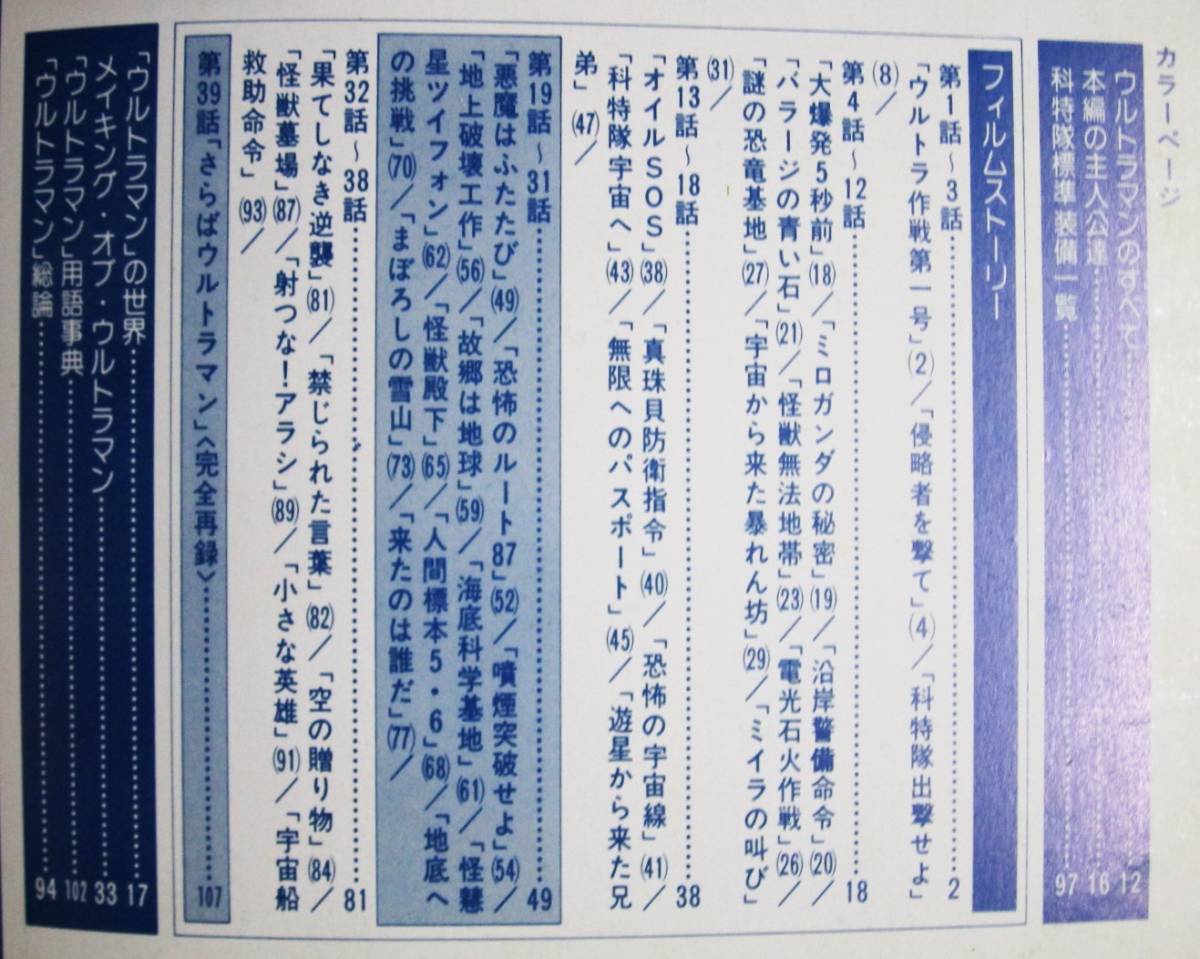 カラーページ
ウルトラマンのすべて……12
本編の主人公達……16
科特隊標準装備一覧……97
フィルムストーリー
第1話〜3話……2
「ウルトラ作戦第一号」(2)/「侵略者を撃て」(4)/「科特隊出撃せよ」
(8)/
第4話〜12話……18
「大爆発5秒前」(18)/「ミロガンダの秘密」(19)/「沿岸警備命令」(20)/
「バラージの青い石」(21)/「怪獣無法地帯」(23)/「電光石火作戦」(26)/
「謎の恐竜基地」(27)/「宇宙から来た暴れん坊」(29)/「ミイラの叫び」
(31)/
第13話〜18話……38
「オイルSOS」(38)/「真珠貝防衛指令」(40)/「恐怖の宇宙線」(41)/
「科特隊宇宙へ」(43)/「無限へのパスポート」(45)/「遊星から来た兄
弟」(47)/
第19話〜31話……49
「悪魔はふたたび」(49)/「恐怖のルート87」(52)/「噴煙突破せよ」(54)/
「地上破壊工作」(56)/「故郷は地球」(59)/「海底科学基地」(61)/「怪慧
星ツイフォン」(62)/「怪獣殿下」(65)/「人間標本5・6」(68)/「地底へ
の挑戦」(70)/「まぼろしの雪山」(73)/「来たのは誰だ」(77)/
第32話〜38話……81
「果てしなき逆襲」(81)/「禁じられた言葉」(82)/「空の贈り物」(84)/
「怪獣墓場」(87)/「射つな!アラシ」(89)/「小さな英雄」(91)/「宇宙船
救助命令」(93)/
第39話「さらばウルトラマン」〈完全再録〉……107
「ウルトラマン」の世界……17
メイキング・オブ・ウルトラマン……33
「ウルトラマン」用語事典……102
「ウルトラマン」総論……94